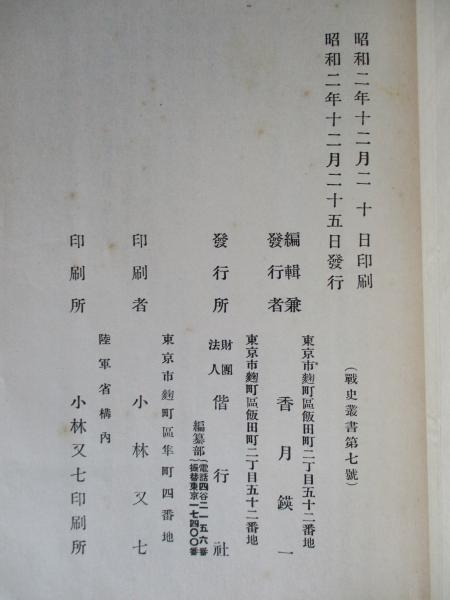 昭和二年十二月二十日印刷
昭和二年十二月二十五日發行
(戰史叢書第七號)
東京市麴町區飯田町二丁目五十二番地
編輯兼發行者 香月鍈一
東京市麴町區飯田町二丁目五十二番地
發行所 財團法人 偕行社
編纂部 (電話四谷二一五六番 振替東京一七四〇〇番)
東京市麴町區隼町四番地
印刷者 小林又七
陸軍省構內
印刷所 小林又七印刷所